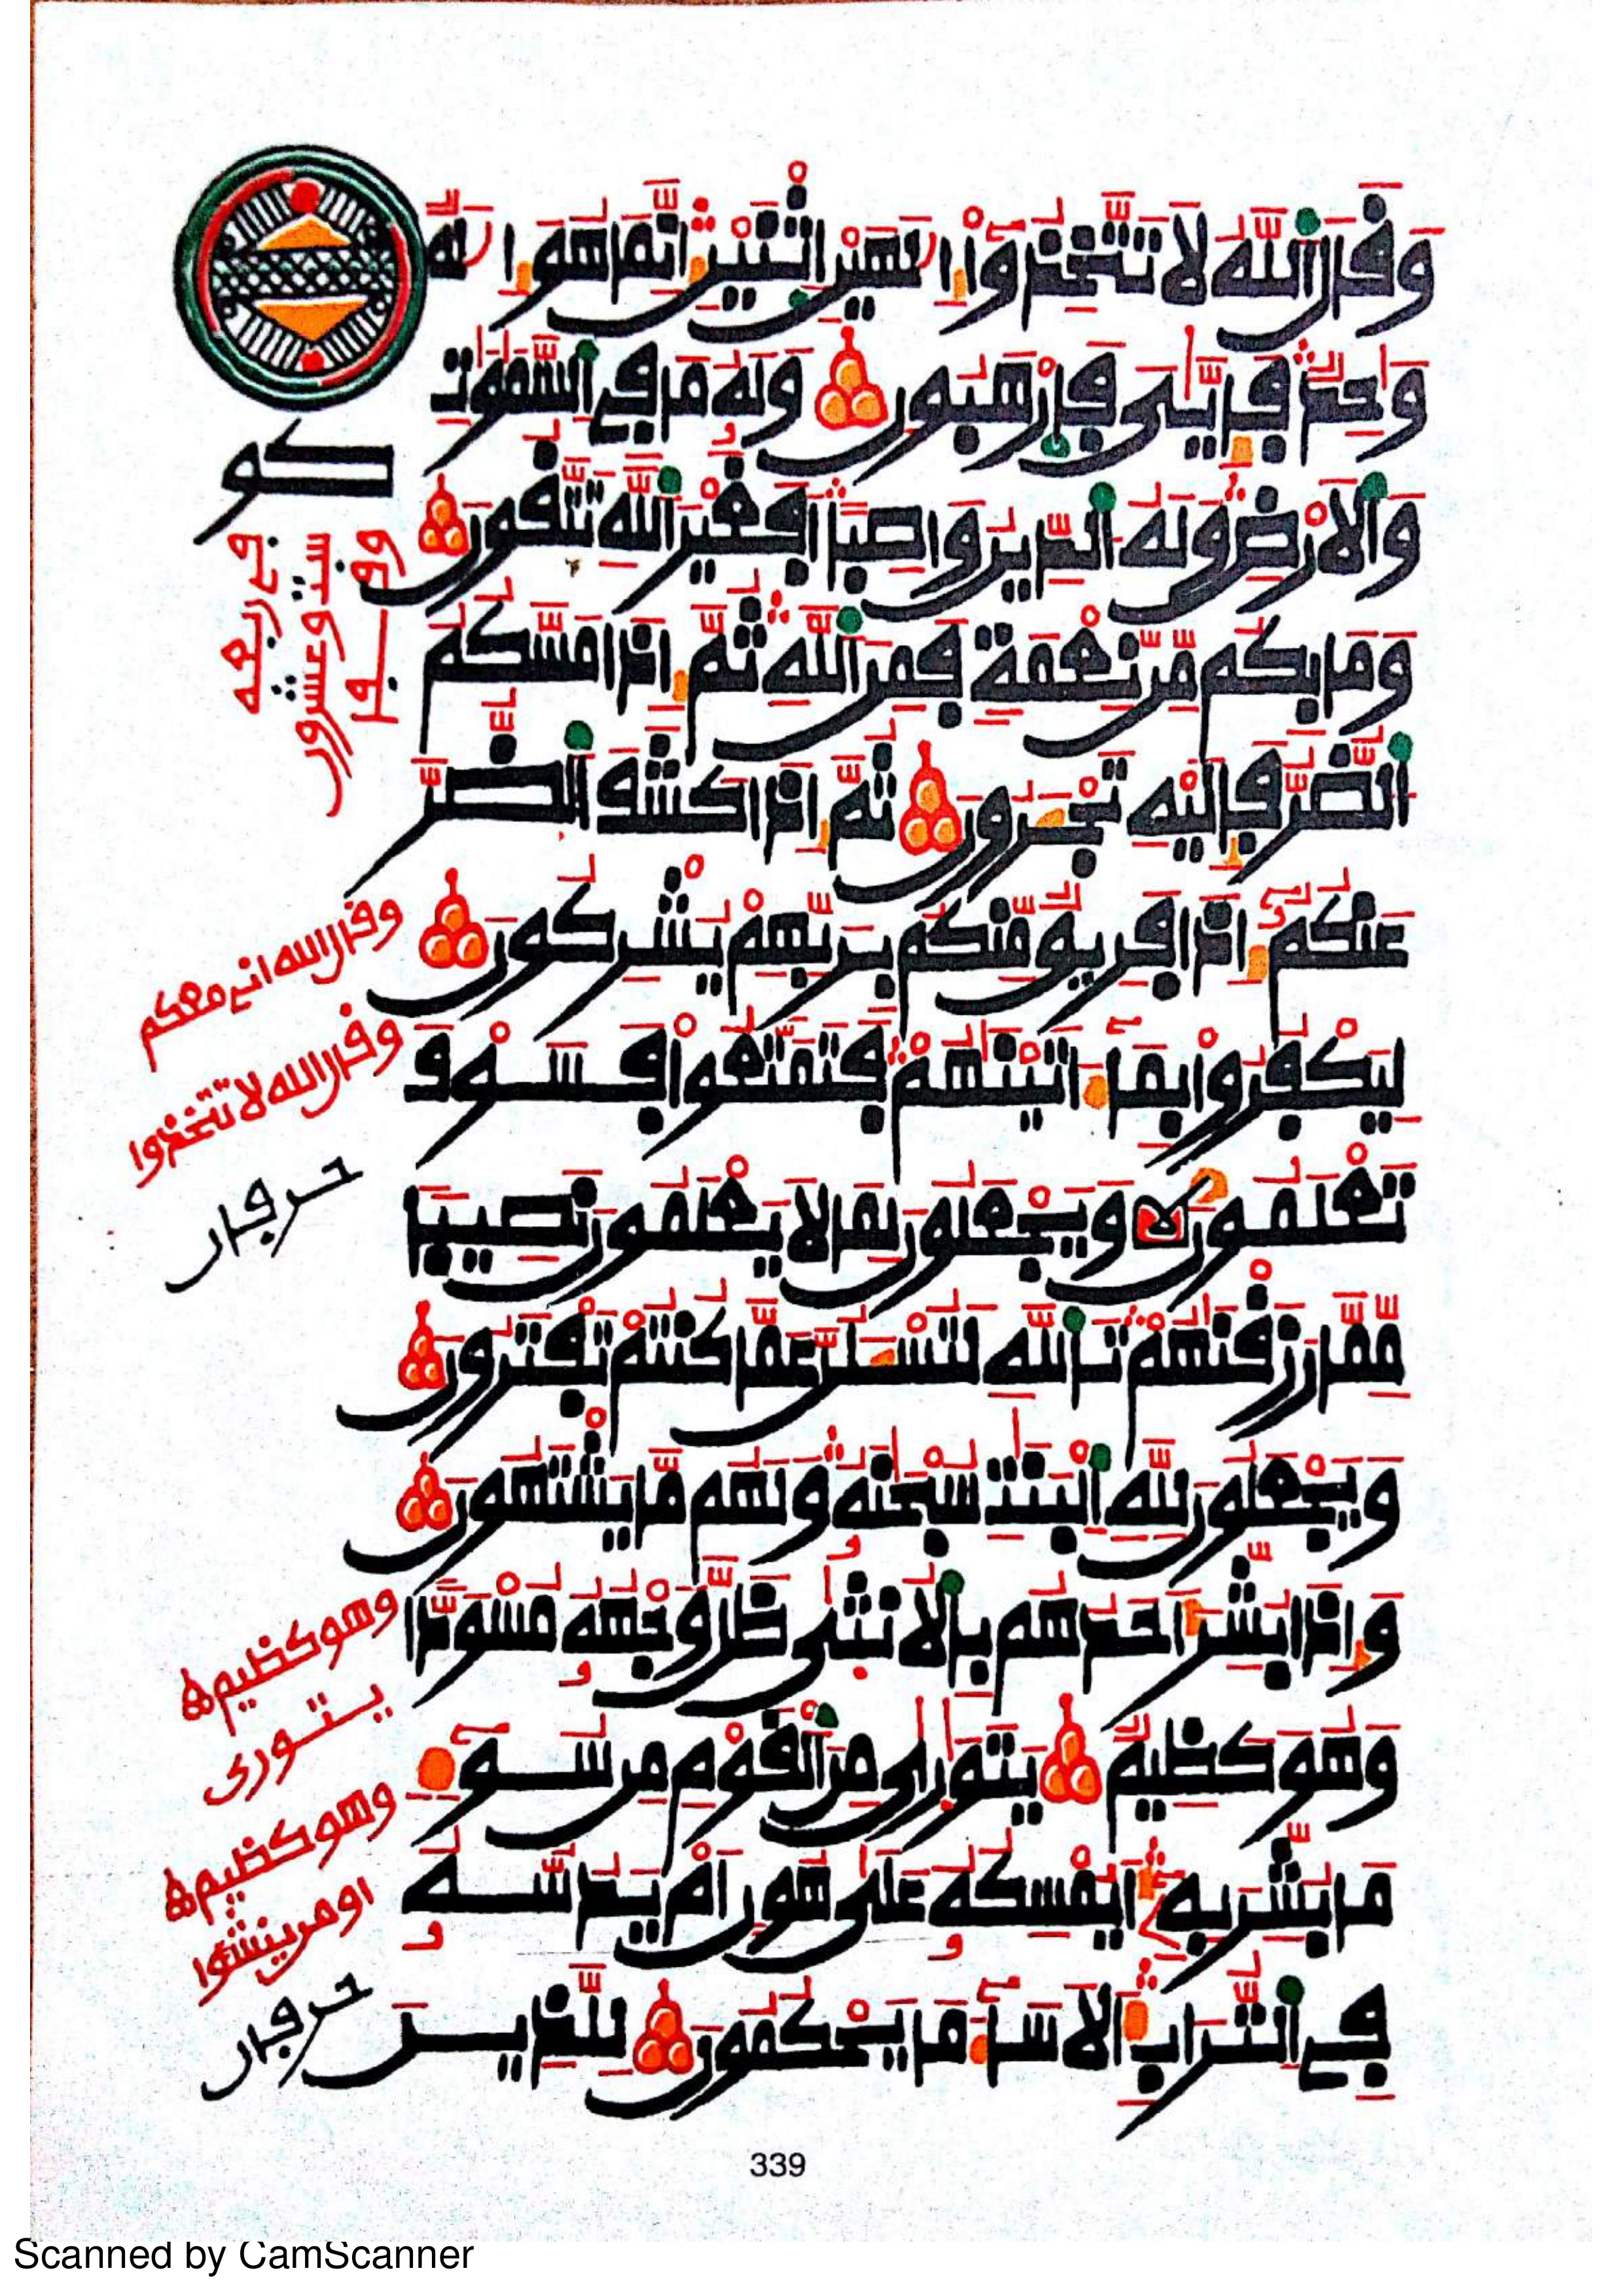 وَقَالَ اَ۬للَّهُ لَا تَتَّخِذُوٓاْ إِلَٰهَيْنِ اِ۪ثْنَيْنِۖ إِنَّمَا هُوَ إِلَٰهٞ
وَٰحِدٞ فَإِيَّٰيَ فَارْهَبُونِ وَلَهُۥ مَا فِے اِ۬لسَّمَٰوَٰتِ
وَالَارْضِ وَلَهُ اُ۬لدِّينُ وَاصِباًۖ اَفَغَيْرَ اَ۬للَّهِ تَتَّقُونَ
وَمَا بِكُم مِّن نِّعْمَةٖ فَمِنَ اَ۬للَّهِۖ ثُمَّ إِذَا مَسَّكُمُ
اُ۬لضُّرُّ فَإِلَيْهِ تَجْـَٔرُونَ ثُمَّ إِذَا كَشَفَ اَ۬لضُّرَّ
عَنكُمُۥٓ إِذَا فَرِيقٞ مِّنكُم بِرَبِّهِمْ يُشْرِكُونَ
لِيَكْفُرُواْ بِمَآ ءَاتَيْنَٰهُمْۖ فَتَمَتَّعُواْ فَسَوْفَ
تَعْلَمُونَ وَيَجْعَلُونَ لِمَا لَا يَعْلَمُونَ نَصِيباٗ
مِّمَّا رَزَقْنَٰهُمْۖ تَاللَّهِ لَتُسْـَٔلُنَّ عَمَّا كُنتُمْ تَفْتَرُونَ
وَيَجْعَلُونَ لِلَّهِ اِ۬لْبَنَٰتِ سُبْحَٰنَهُۥ وَلَهُم مَّا يَشْتَهُونَ
وَإِذَا بُشِّرَ أَحَدُهُم بِالُانث۪يٰ ظَلَّ وَجْهُهُۥ مُسْوَدّاٗ
وَهُوَ كَظِيمٞ يَتَوَٰر۪يٰ مِنَ اَ۬لْقَوْمِ مِن سُوٓءِ
مَا بُشِّرَ بِهِۦٓۖ أَيُمْسِكُهُۥ عَلَيٰ هُونٍ اَمْ يَدُسُّهُۥ
فِے اِ۬لتُّرَابِۖ أَلَا سَآءَ مَا يَحْكُمُونَ لِلذِينَ
كو
وقف
ستة وعشرون
جے ربعه
وقال الله انے معكم
وقال الله لا تتخذوا
حرفان
وهو كظيم
يتورى
وهو كظيم
اومن ينشؤا
حرفان
339
Scanned by CamScanner